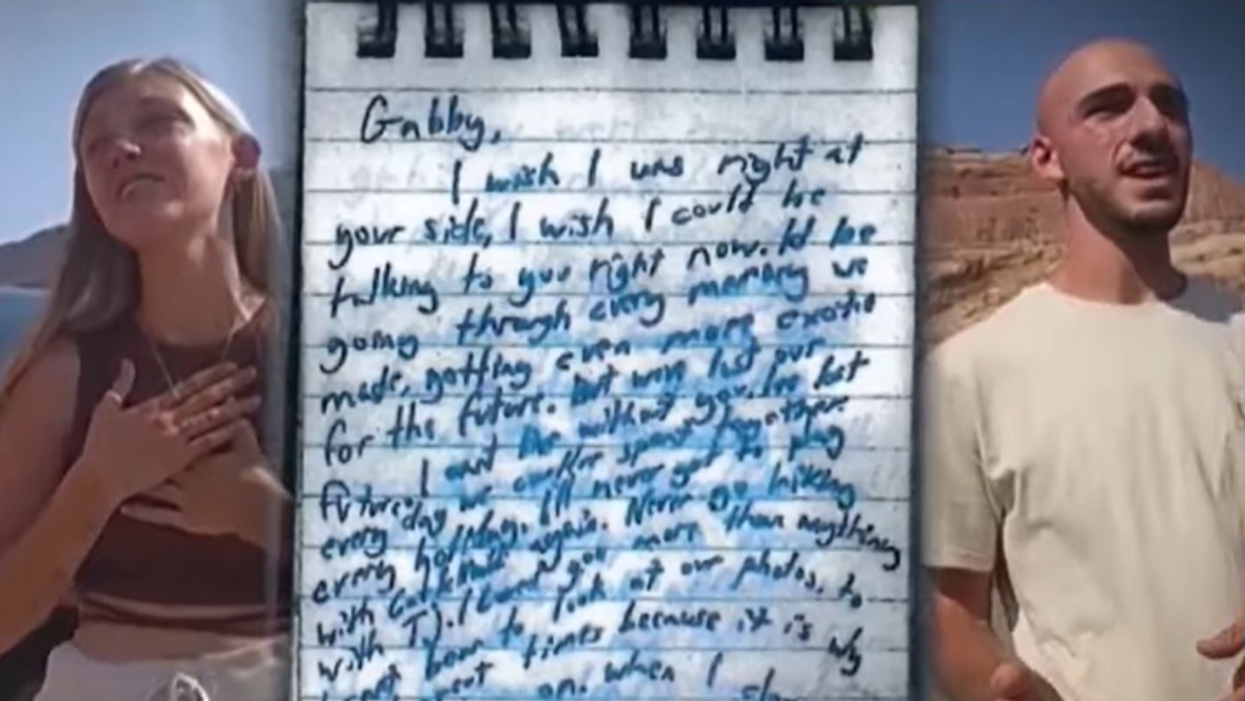 Gabby,
I wish I was right at
your side, I wish I could be
talking to you right now. Id be
going through every memory we
made, getting even more
for the future. But weve lost our
future. I cant live without you. Ive lost
every day we spent together
every holiday. Ill never get to play
with again. Never go hiking
with TJ. I loved you more than anything
bear to look at our photos, to
great times because it is why
on. when I